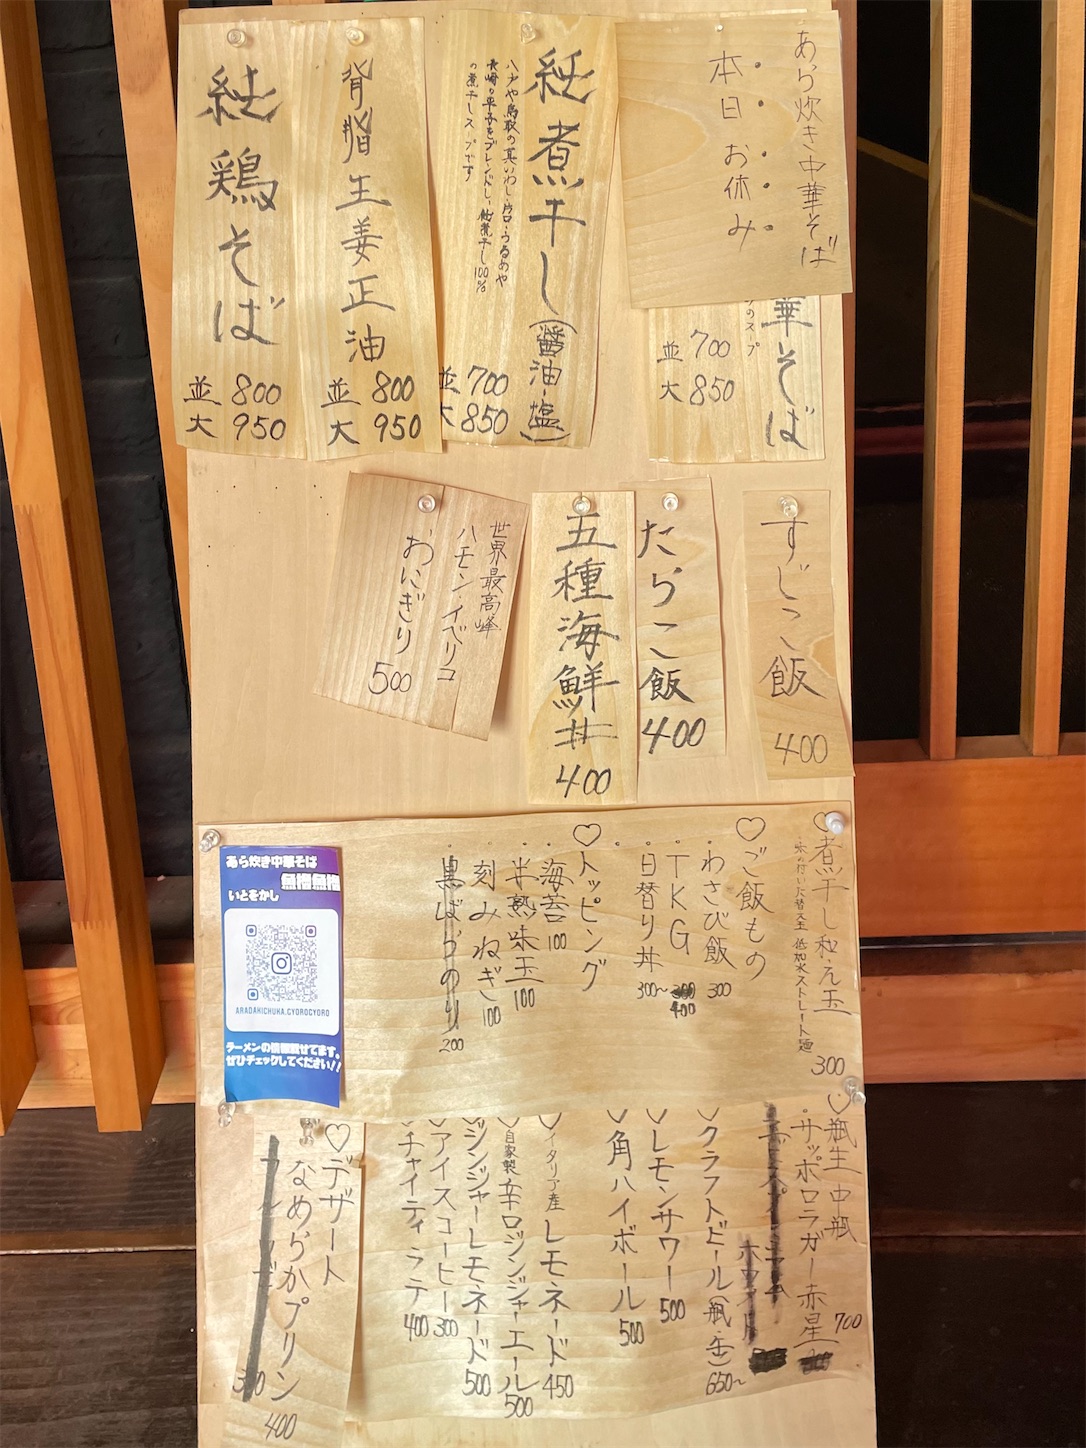 あら炊き中華そば
本日お休み
華そば
のスプ
並 700
大 850
純煮干し(醤油・塩)
八戸や鳥取の真いわし・片口・うるめや
長崎の平子をブレンドし、純煮干し100%
の煮干しスープです
並 700
大 850
背脂生姜正油
並 800
大 950
純鶏そば
並 800
大 950
すじこ飯
400
たらこ飯
400
五種海鮮丼
400
世界最高峰
ハモン・イベリコ
おにぎり
500
♡煮干し和え玉
・味の付いた替え玉 低加水ストレート麺
300
♡ご飯もの
・わさび飯 300
・TKG 400
・日替り丼 300〜
♡トッピング
・海苔 100
・半熟味玉 100
・刻みねぎ 100
・黒ばらのり 200
あら炊き中華そば
魚撈魚撈
いとをかし
ARADAKICHUKA.GYOROGYORO
ラーメンの情報載せてます。
ぜひチェックしてください!!
♡瓶生 中瓶
・サッポロラガー赤星 700
♡クラフトビール(瓶・缶) 650〜
♡レモンサワー 500
♡角ハイボール 500
♡イタリア産レモネード 450
♡自家製辛口ジンジャーエール 500
♡ジンジャーレモネード 500
♡アイスコーヒー 300
♡チャイティラテ 400
♡デザート
なめらかプリン
400